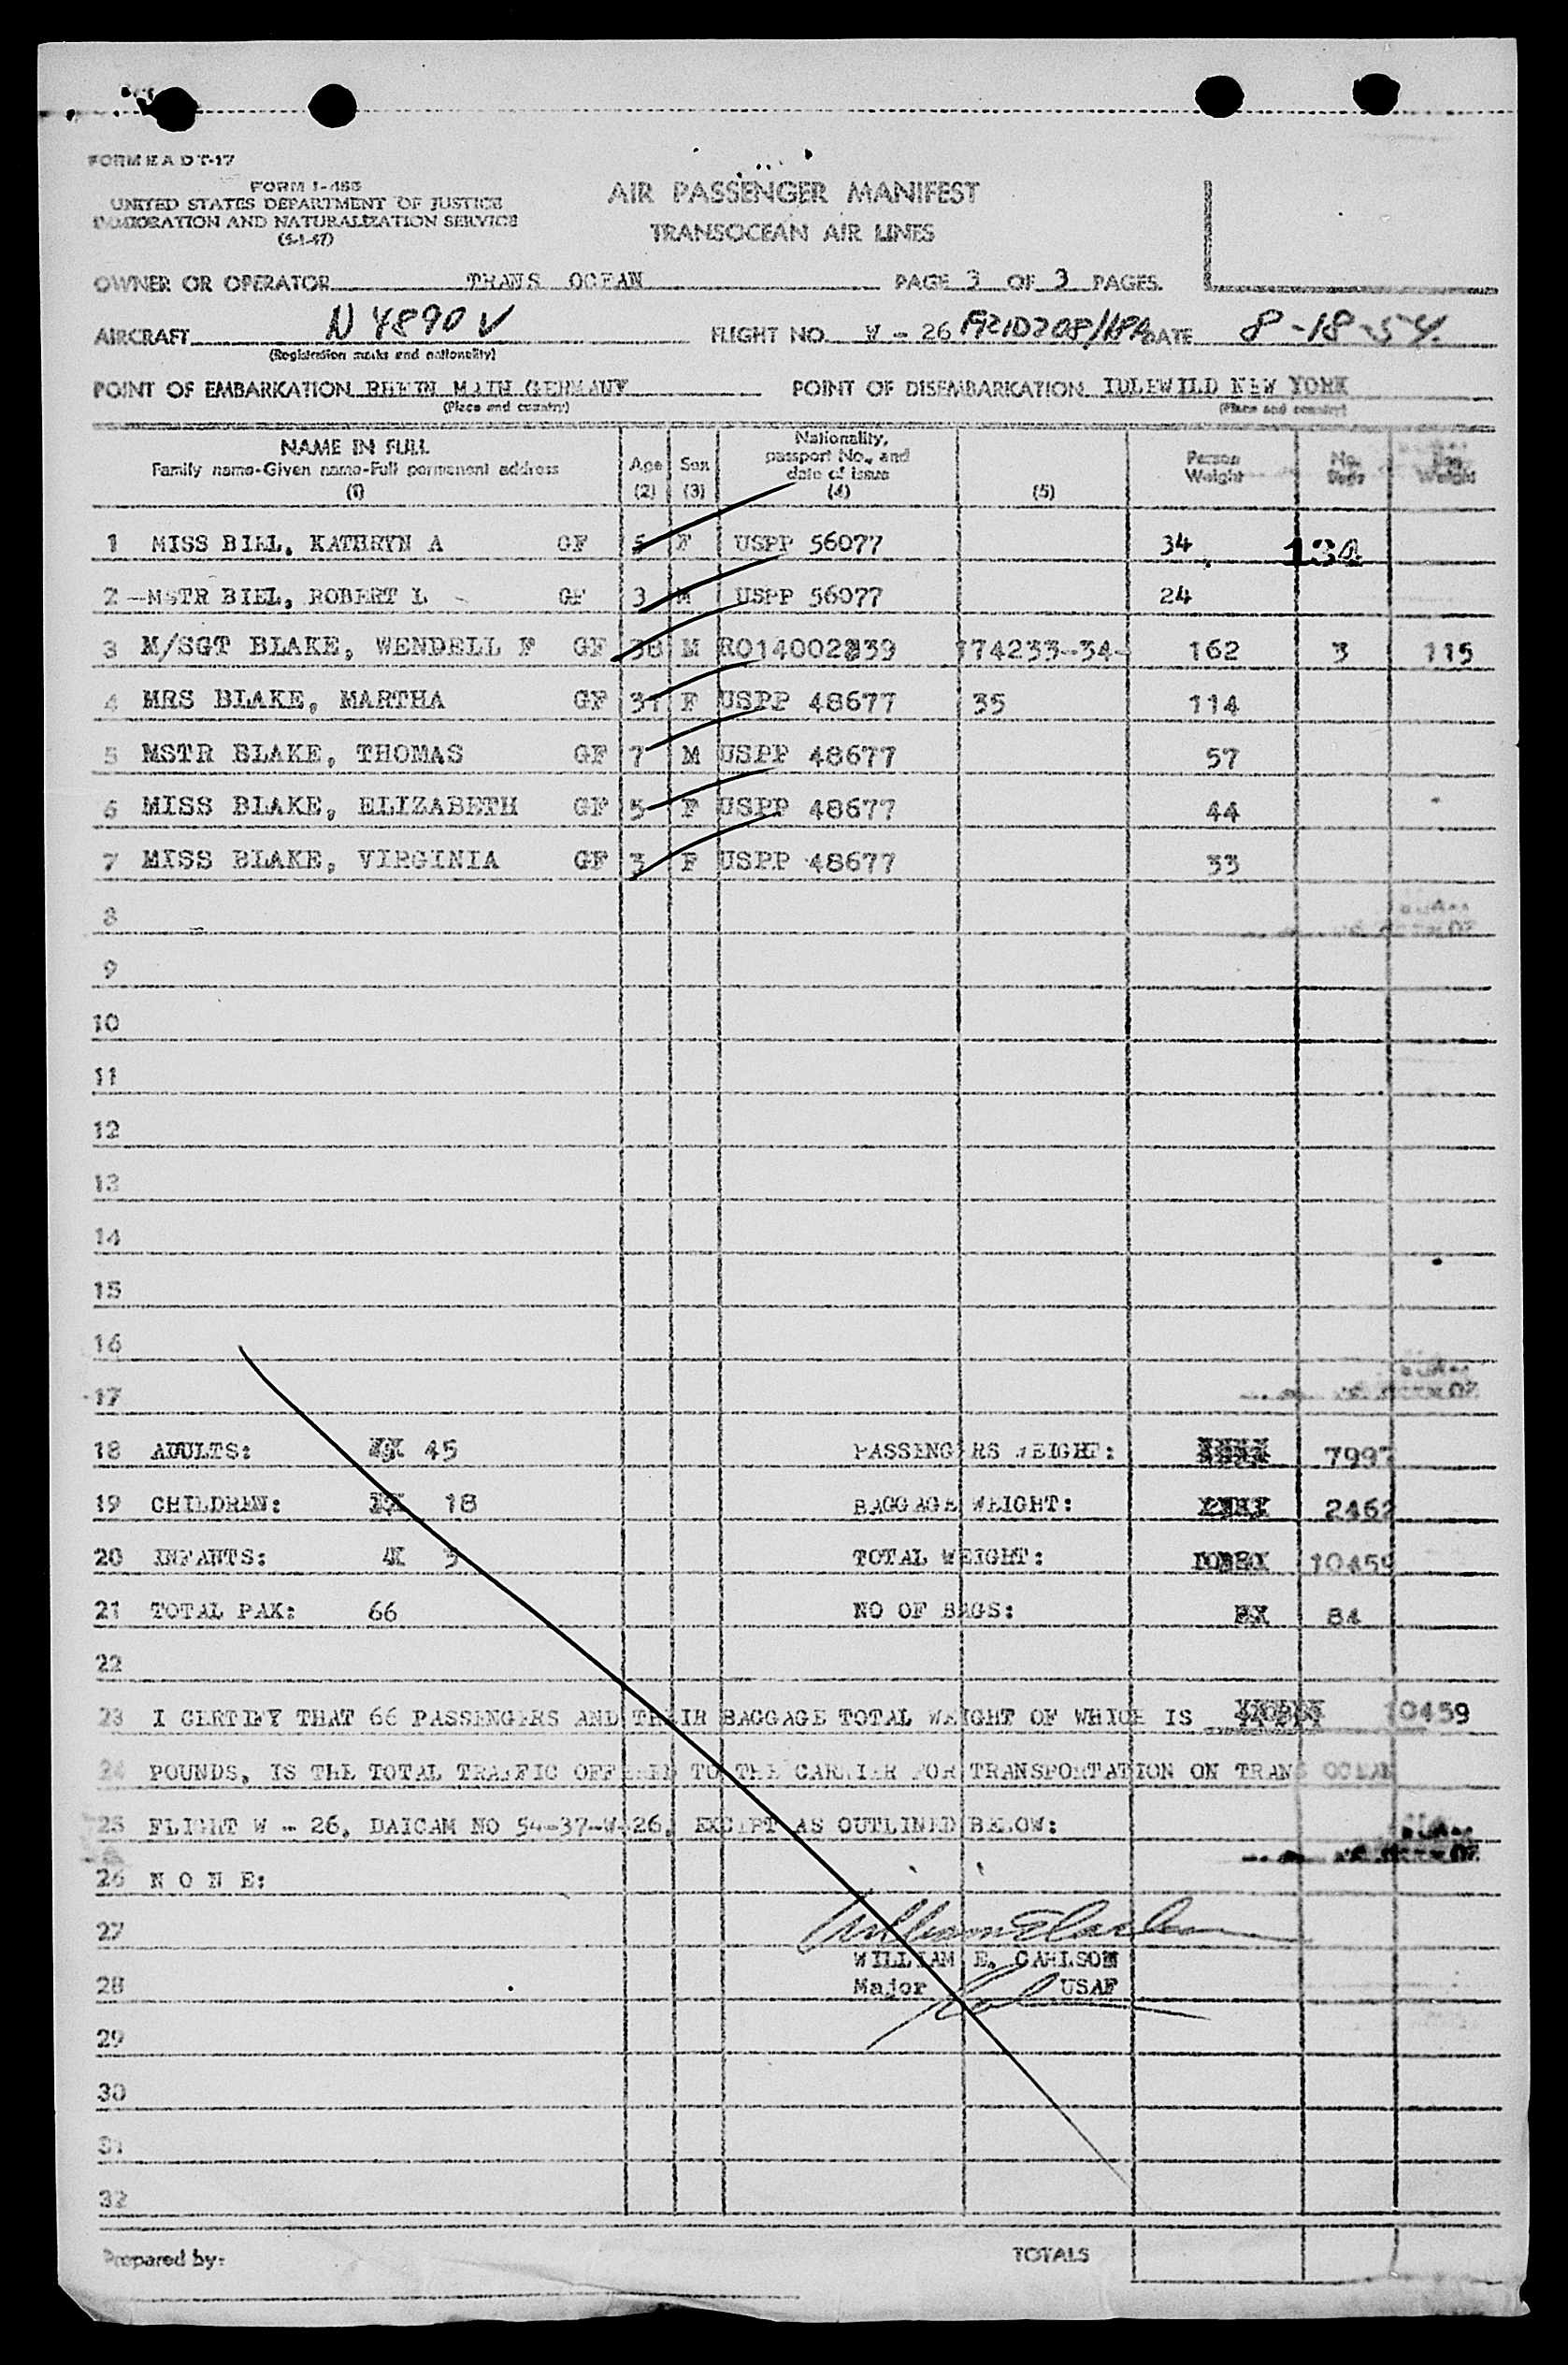 FORM E A D T-17
UNITED STATES DEPARTMENT OF JUSTICE
IMMIGRATION AND NATURALIZATION SERVICE
(5-1-47)
AIR PASSENGER MANIFEST
TRANSOCEAN AIR LINES
OWNER OR OPERATOR TRANS OCEAN PAGE 3 OF 3 PAGES
AIRCRAFT N4890V FLIGHT NO. W - 26 DATE 8-18-54
(Registration marks and nationality)
POINT OF EMBARKATION RHEIN MAIN GERMANY POINT OF DISEMBARKATION IDLEWILD NEW YORK
(Place and country) (Place and country)
NAME IN FULL Age Sex Nationality, passport No., and date of issue Person Weight No. Weight
Family name-Given name-Full permanent address
(1) (2) (3) (4) (5)
1 MISS BIEL, KATHRYN A GF 5 F USPP 56077 34 134
2 MSTR BIEL, ROBERT L GF 3 M USPP 56077 24
3 M/SGT BLAKE, WENDELL F GF 38 M RO14002839 774233-34- 162 3 115
4 MRS BLAKE, MARTHA GF 31 F USPP 48677 35 114
5 MSTR BLAKE, THOMAS GF 7 M USPP 48677 57
6 MISS BLAKE, ELIZABETH GF 5 F USPP 48677 44
7 MISS BLAKE, VIRGINIA GF 3 F USPP 48677 33
8
9
10
11
12
13
14
15
16
17
18 ADULTS: 45 PASSENGERS WEIGHT: 7997
19 CHILDREN: 18 BAGGAGE WEIGHT: 2462
20 INFANTS: 3 TOTAL WEIGHT: 10459
21 TOTAL PAX: 66 NO OF BAGS: 84
22
23 I CERTIFY THAT 66 PASSENGERS AND THEIR BAGGAGE TOTAL WEIGHT OF WHICH IS 10459
24 POUNDS, IS THE TOTAL TRAFFIC OFFERED TO THE CARRIER FOR TRANSPORTATION ON TRANS OCEAN
25 FLIGHT W - 26, DAICAM NO 54-37-W-26, EXCEPT AS OUTLINED BELOW:
26 N O N E:
27 William E Carlson
WILLIAM E. CARLSON
28 Major USAF
29
30
31
32
Prepared by: TOTALS